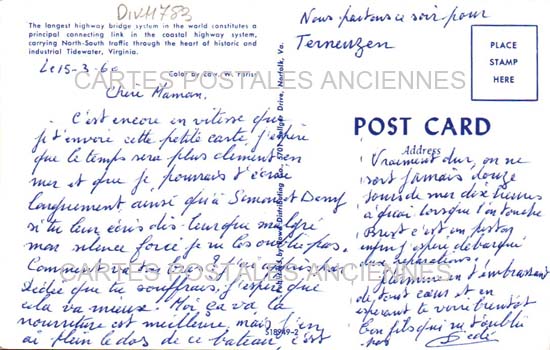 DIVH783
The longest highway bridge system in the world constitutes a
principal connecting link in the coastal highway system,
carrying North-South traffic through the heart of historic and
industrial Tidewater, Virginia.
Color by
Nous partons ce soir pour
Terneuzen
PLACE
STAMP
HERE
CARTES POSTALES ANCIENNES
Le 15-3-60
Chère Maman,
C'est encore en vitesse que
je t'envoie cette petite carte, j'espère
que le temps sera plus clément en
mer et que je pourrais t'écrire
longuement ainsi qu'à Simone et Deny
si tu leur écris dis leur que malgré
mon silence forcé je ne les oublie pas.
Comment va ta
l'idée que tu souffrais, j'espère que
cela va mieux. Moi ça va la
nourriture est meilleure, mais j'en
ai plein le dos de ce bateau, c'est
Distributing
Drive, Norfolk, Va.
S18949-2
POST CARD
Address
Vraiment dur, on ne
sort jamais douze
jours de mer dix heures
à quai lorsque l'on touche
Brest c'est en
enfin j'espère débarquer
aux réparations.
t'embrassant
de tout cœur et en
espérant te voir bientôt
ton fils qui ne t'oublie
pas Dédé
CARTES POSTALES ANCIENNES